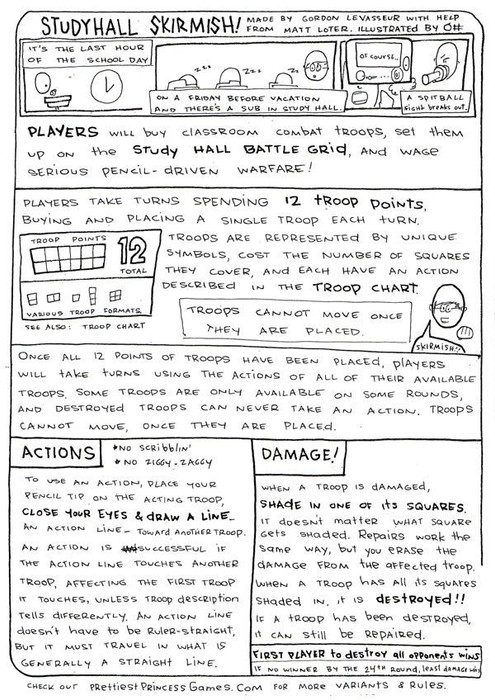 STUDYHALL SKIRMISH! MADE BY GORDON LEVASSEUR WITH HELP
FROM MATT LOTER. ILLUSTRATED BY O#
IT'S THE LAST HOUR
OF THE SCHOOL DAY
zzz
zzz
zzz
ON A FRIDAY BEFORE VACATION
AND THERE'S A SUB IN STUDY HALL.
OF COURSE...
A SPITBALL
FIGHT BREAKS OUT.
PLAYERS WILL BUY CLASSROOM COMBAT TROOPS, SET THEM
UP ON THE STUDY HALL BATTLE GRID, AND WAGE
SERIOUS PENCIL-DRIVEN WARFARE!
PLAYERS TAKE TURNS SPENDING 12 TROOP POINTS,
BUYING AND PLACING A SINGLE TROOP EACH TURN.
TROOP POINTS
12
TOTAL
VARIOUS TROOP FORMATS
SEE ALSO: TROOP CHART
TROOPS ARE REPRESENTED BY UNIQUE
SYMBOLS, COST THE NUMBER OF SQUARES
THEY COVER, AND EACH HAVE AN ACTION
DESCRIBED IN THE TROOP CHART.
TROOPS CANNOT MOVE ONCE
THEY ARE PLACED.
SKIRMISH!!
ONCE ALL 12 POINTS OF TROOPS HAVE BEEN PLACED, PLAYERS
WILL TAKE TURNS USING THE ACTIONS OF ALL OF THEIR AVAILABLE
TROOPS. SOME TROOPS ARE ONLY AVAILABLE ON SOME ROUNDS,
AND DESTROYED TROOPS CAN NEVER TAKE AN ACTION. TROOPS
CANNOT MOVE, ONCE THEY ARE PLACED.
ACTIONS
*NO SCRIBBLIN'
*NO ZIGGY-ZAGGY
TO USE AN ACTION, PLACE YOUR
PENCIL TIP ON THE ACTING TROOP,
CLOSE YOUR EYES & DRAW A LINE—
AN ACTION LINE- TOWARD ANOTHER TROOP.
AN ACTION IS SUCCESSFUL IF
THE ACTION LINE TOUCHES ANOTHER
TROOP, AFFECTING THE FIRST TROOP
IT TOUCHES, UNLESS TROOP DESCRIPTION
TELLS DIFFERENTLY. AN ACTION LINE
DOESN'T HAVE TO BE RULER-STRAIGHT,
BUT IT MUST TRAVEL IN WHAT IS
GENERALLY A STRAIGHT LINE.
DAMAGE!
WHEN A TROOP IS DAMAGED,
SHADE IN ONE OF ITS SQUARES.
IT DOESN'T MATTER WHAT SQUARE
GETS SHADED. REPAIRS WORK THE
SAME WAY, BUT YOU ERASE THE
DAMAGE FROM THE AFFECTED TROOP.
WHEN A TROOP HAS ALL ITS SQUARES
SHADED IN, IT IS DESTROYED!!
IF A TROOP HAS BEEN DESTROYED,
IT CAN STILL BE REPAIRED.
FIRST PLAYER TO DESTROY ALL OPPONENTS WINS
IF NO WINNER BY THE 24TH ROUND, LEAST DAMAGE WINS
CHECK OUT PRETTIESTPRINCESSGAMES.COM FOR MORE VARIANTS & RULES.